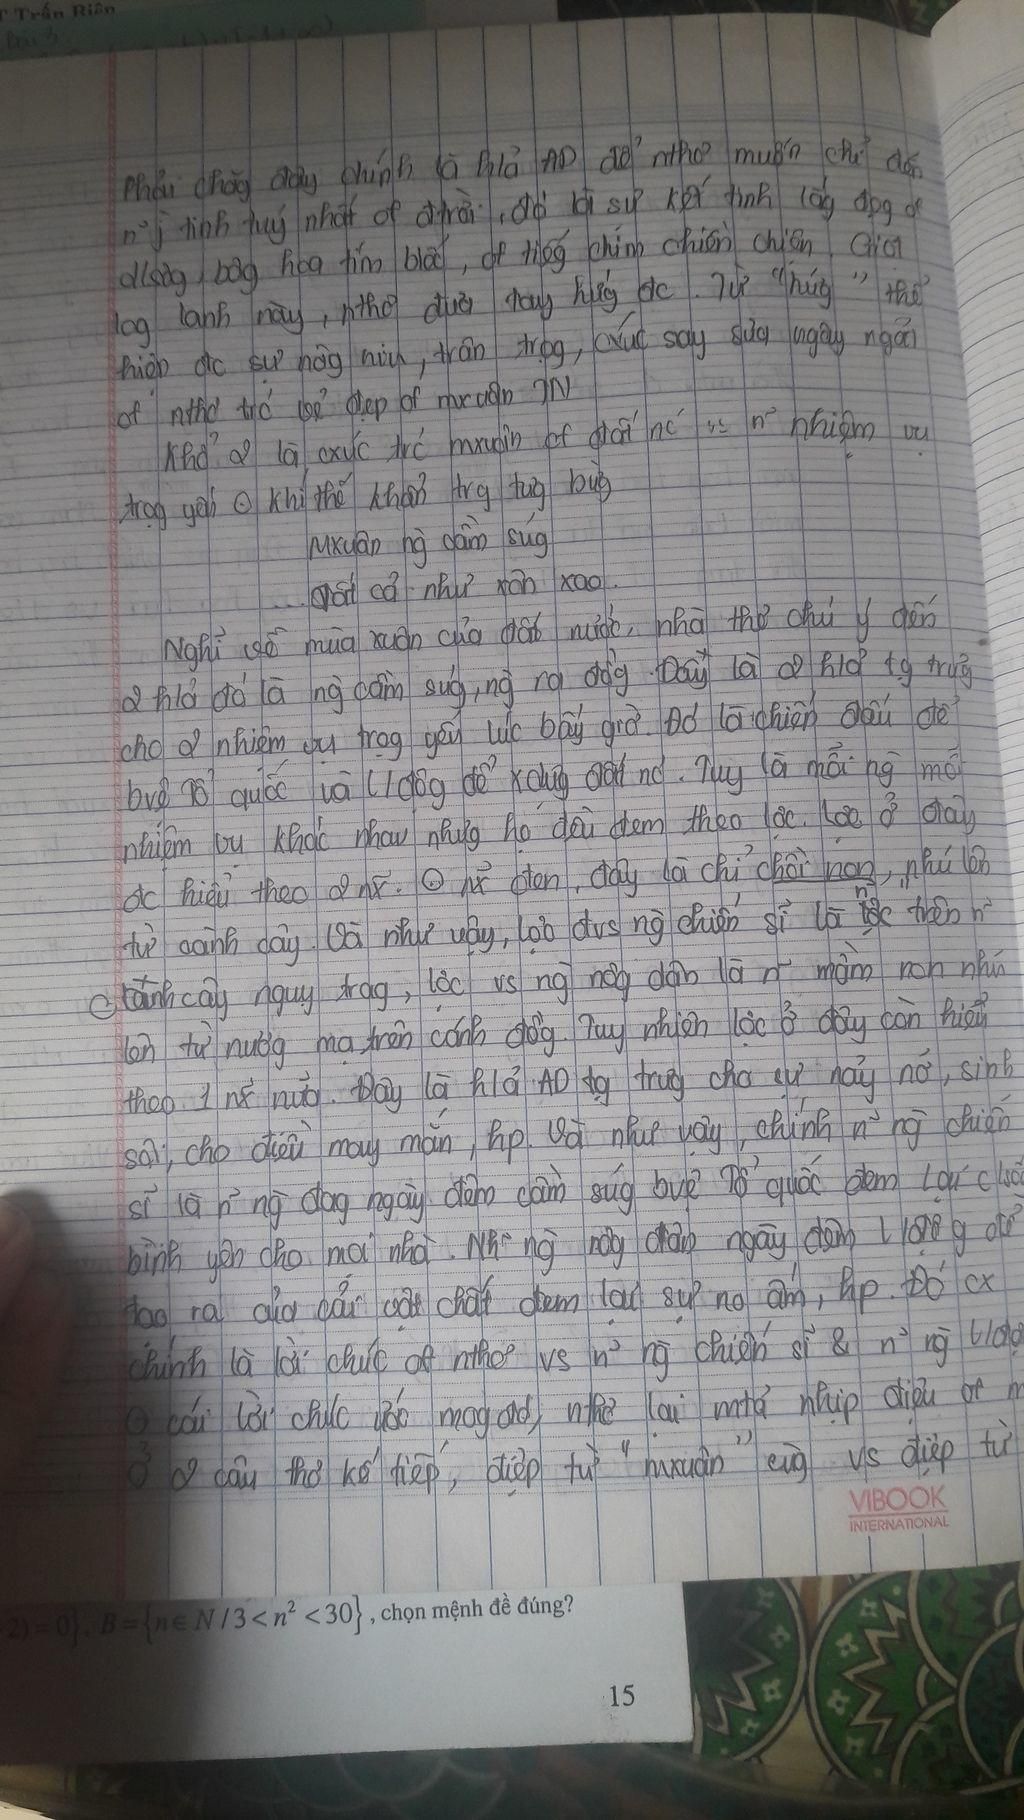 T Trấn Biên
Bài 3
phải chăng đây chính là h/ả AD để nthơ muốn chỉ đến
n~ j tinh tuý nhất of đ/trời, đó là sự kết tinh lắg đọg of
dlsôg, bôg hoa tím biếc, of tiếg chim chiền chiện. Giọt
log lanh này, nthơ đưa tay hứg đc. Từ "hứg" thể
hiện đc sự nâg niu, trân trọg, cxúc say sưa ngây ngất
of nthơ trc vẻ đẹp of mxuân TN
Khổ 2 là cxúc trc mxuân of đất nc vs n~ nhiệm vụ
trọg yếu khí thế khẩn trg tưg bừg
Mxuân ng cầm súg
... Tất cả như xôn xao.
Nghĩ về mùa xuân của đất nước, nhà thơ chú ý đến
2 h/ả đó là ng cầm súg, ng ra đồg. Đây là 2 h/ả tg trưg
cho 2 nhiệm vụ trọg yếu lúc bấy giờ. Đó là chiến đấu để
bvệ Tổ quốc và l/độg để xdựg đất nc. Tuy là mỗi ng mỗi
nhiệm vụ khác nhau nhưg họ đều đem theo lộc. Lộc ở đây
đc hiểu theo 2 nx̃. nx̃ đen, đây là chỉ chồi non, nhú lên
từ cành cây. Và như vậy, lộc đvs ng chiến sĩ là lộc trên n~
cành cây nguỵ trag, lộc vs ng nôg dân là n~ mầm non nhú
lên từ nươg mạ trên cánh đồg. Tuy nhiên lộc ở đây còn hiểu
theo 1 nx̃ nữa. Đây là h/ả AD tg trưg cho sự nảy nở, sinh
sôi, cho điều may mắn, hp. Và như vậy, chính n~ ng chiến
sĩ là n~ ng đag ngày đêm cầm súg bvệ Tổ quốc đem lại c/số
bình yên cho mọi nhà. Nh~ ng nôg dân ngày đêm l/độg để
tạo ra của cải vật chất đem lại sự no ấm, hp. Đó cx
chính là lời chúc of nthơ vs n~ ng chiến sĩ & n~ ng l/độg
cái lời chúc nthơ lại mtả nhịp điệu of m
Ở 2 câu thơ kế tiếp, điệp từ "mxuân" cùg vs điệp từ
VIBOOK
INTERNATIONAL
2) = 0}, B = {n ∈ N / 3 < n² < 30}, chọn mệnh đề đúng?
15